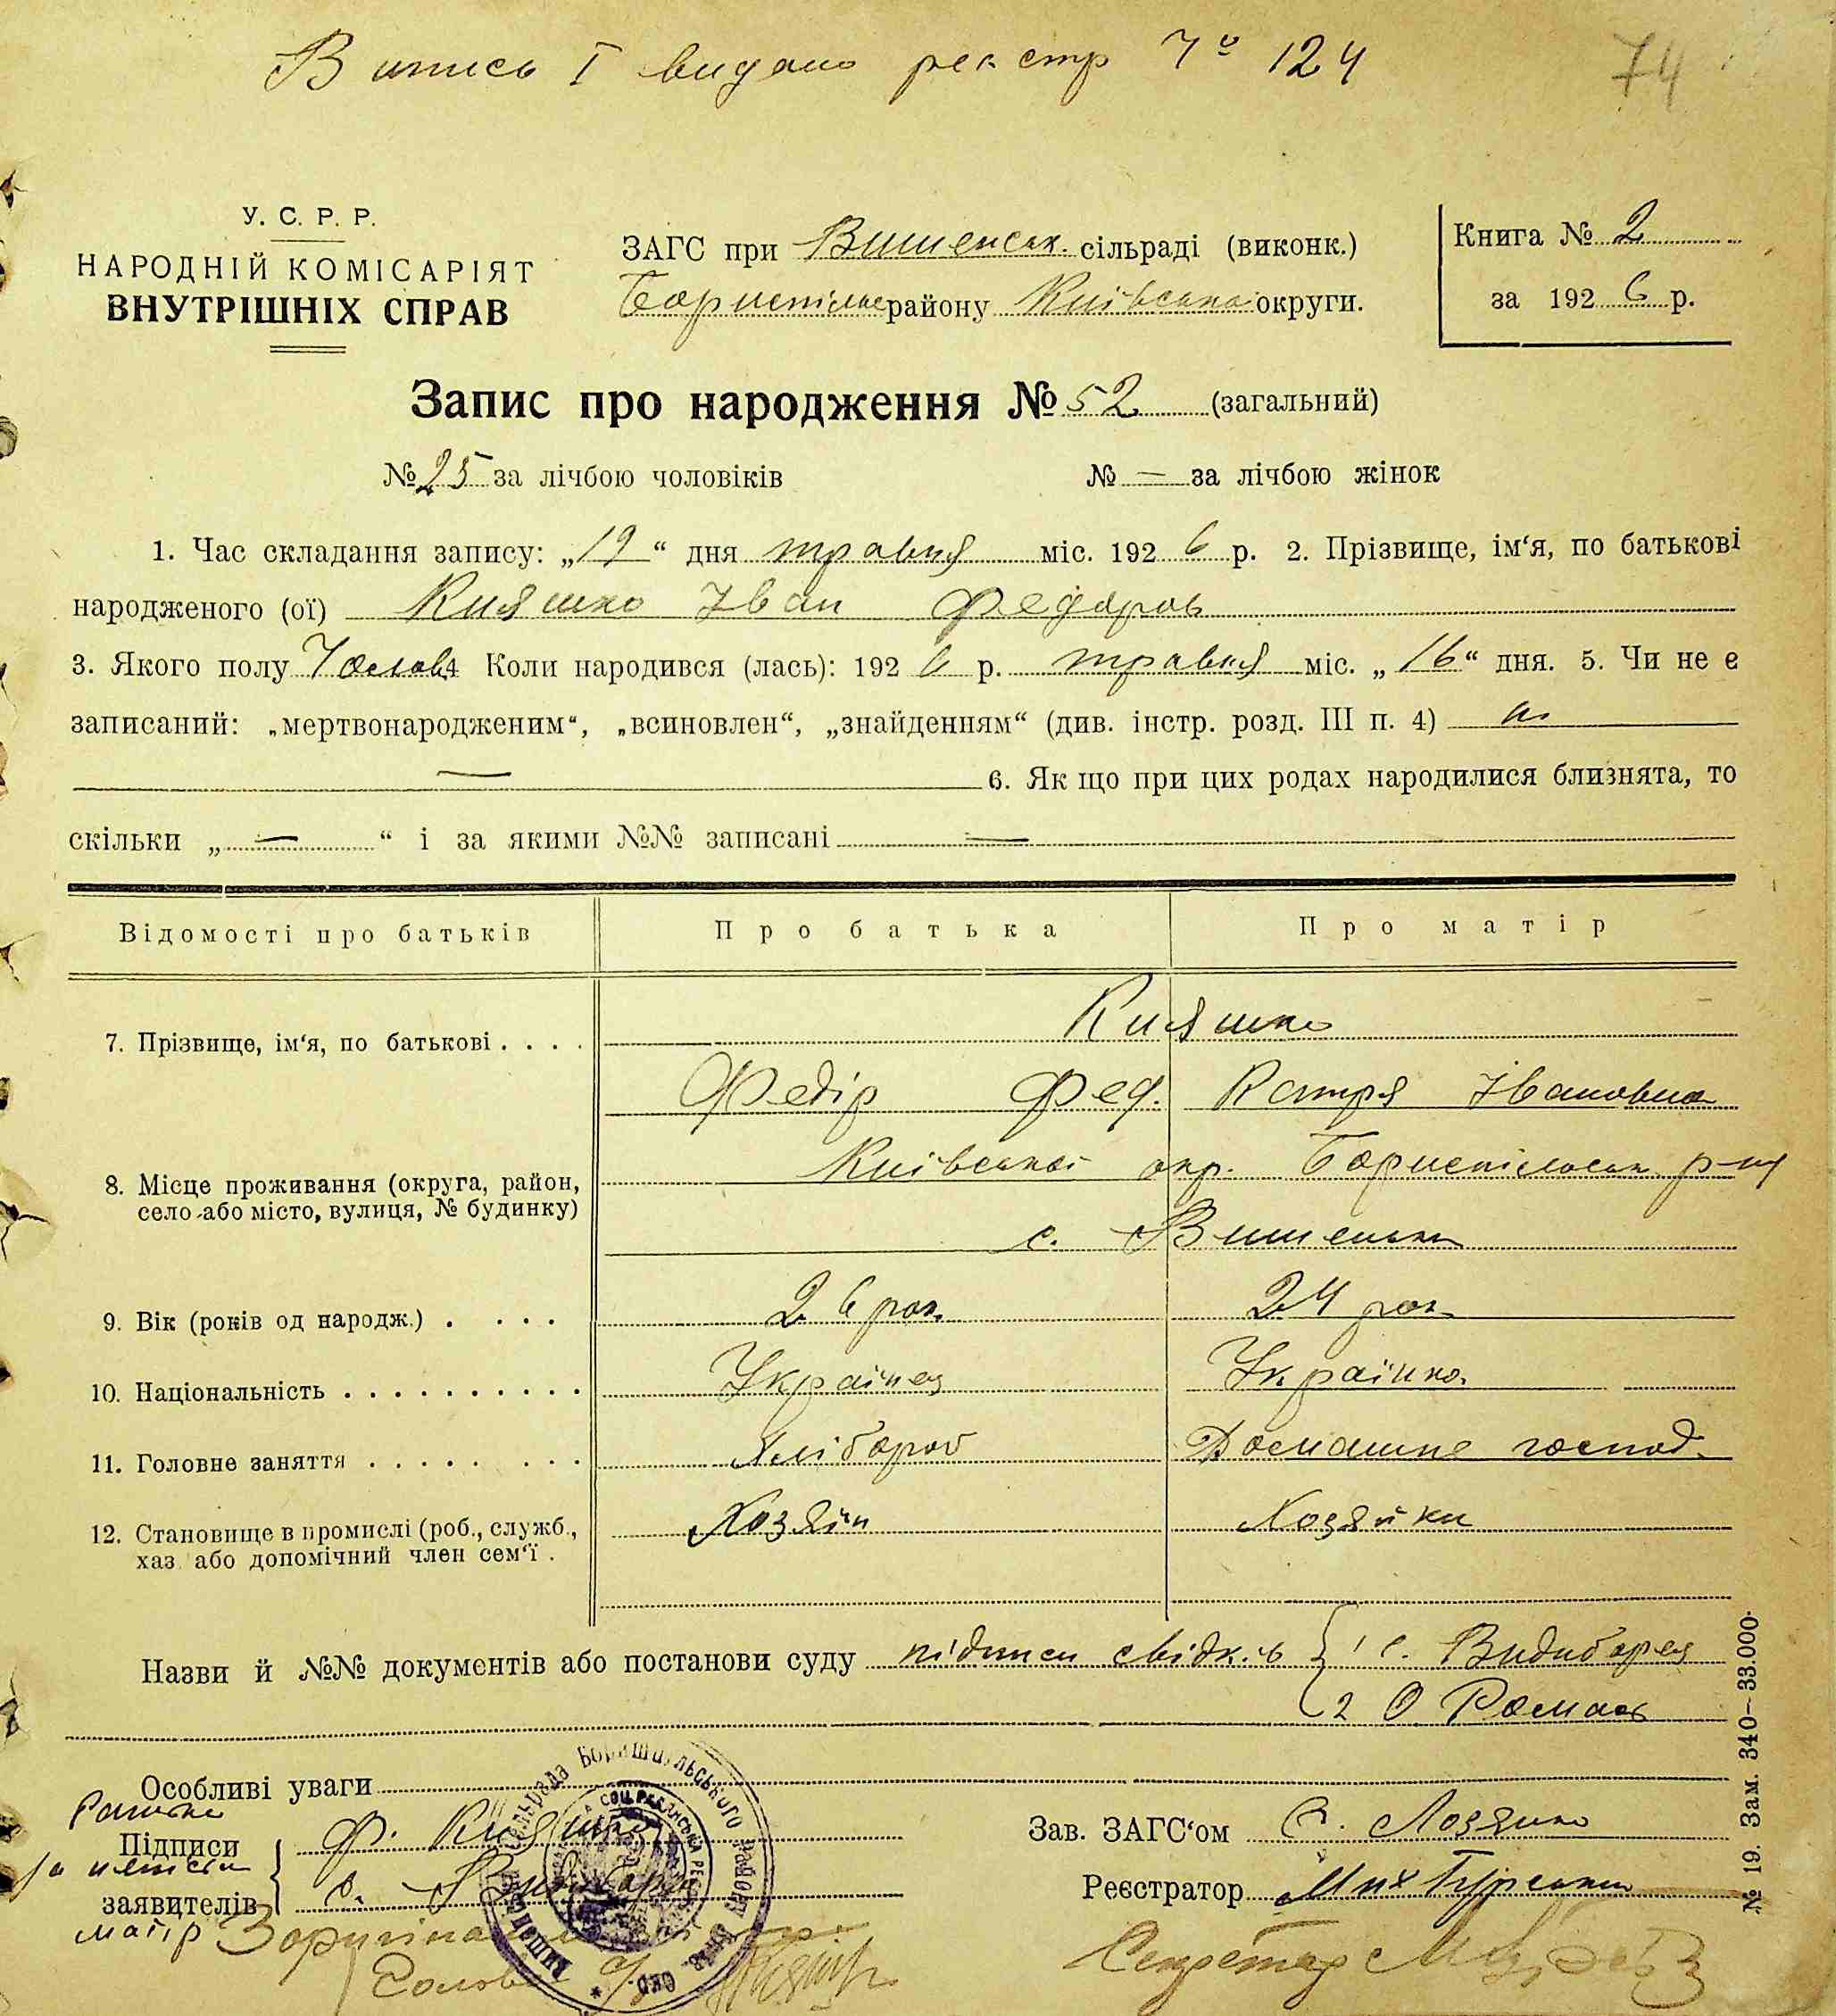 Випись І видано реєстр Nº 124
74
У. С. Р. Р.
НАРОДНІЙ КОМІСАРІЯТ
ВНУТРІШНІХ СПРАВ
ЗАГС при Вишенськ. сільраді (виконк.)
Бориспільс району Київської округи.
Книга № 2
за 1926 р.
Запис про народження № 52 (загальний)
№ 25 за лічбою чоловіків № — за лічбою жінок
1. Час складання запису: „19“ дня травня міс. 1926 р. 2. Прізвище, ім‘я, по батькові
народженого (ої) Кияшко Іван Федоров
3. Якого полу Чолов. 4 Коли народився (лась): 1926 р. травня міс. „16“ дня. 5. Чи не є
записаний: „мертвонародженим“, „всиновлен“, „знайденням“ (див. інстр. розд. III п. 4)
— 6. Як що при цих родах народилися близнята, то
скільки „—“ і за якими №№ записані —
Відомості про батьків Про батька Про матір
7. Прізвище, ім‘я, по батькові . . . . Кияшко
Федір Фед. Катря Івановна
8. Місце проживання (округа, район, село або місто, вулиця, № будинку) Київської окр. Бориспільськ. р-ну
с. Вишеньки
9. Вік (років од народж.) . . . . 26 рок. 24 рок
10. Національність . . . . . . . . . . Українец Українка
11. Головне заняття . . . . . . . . Хлібороб Домашнє господ.
12. Становище в промислі (роб., служб., Хозяїн Хозяйка
хаз. або допомічний член сем‘ї .
Назви й №№ документів або постанови суду підписи свідків 1 С. Видиборец
2 О Ромась
Особливі уваги
Підписи
заявителів
Ф. Кияшко
матір
Зав. ЗАГС‘ом Лозяшко
Реєстратор Мих
Секретар
№ 19. Зам. 340—33.000.